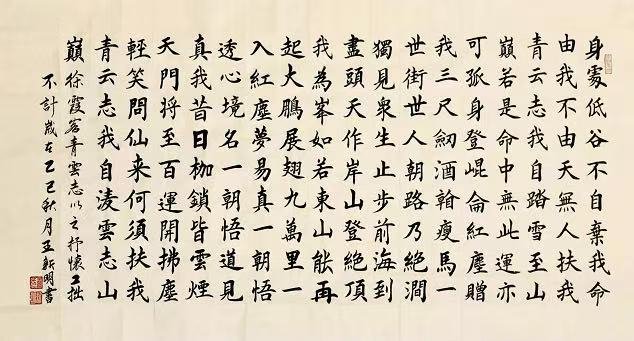 身處低谷不自棄我命
由我不由天無人扶我
青云志我自踏雪至山
巔若是命中無此運亦
可孤身登崐侖紅塵贈
我三尺劒酒翰瘦馬一
世街世人朝路乃絕澗
獨見衆生止步前海到
盡頭天作岸山登絕頂
我為峯如若東山能再
起大鵬展翅九萬里一
入紅塵夢易真一朝悟
透心境名一朝悟道見
真我昔日枷鎖皆雲煙
天門将至百運開拂塵
輕笑問仙来何須扶我
青云志我自凌雲志山
巔 徐霞客青雲志以之抒懷工拙
不計歲在乙巳秋月王新明書